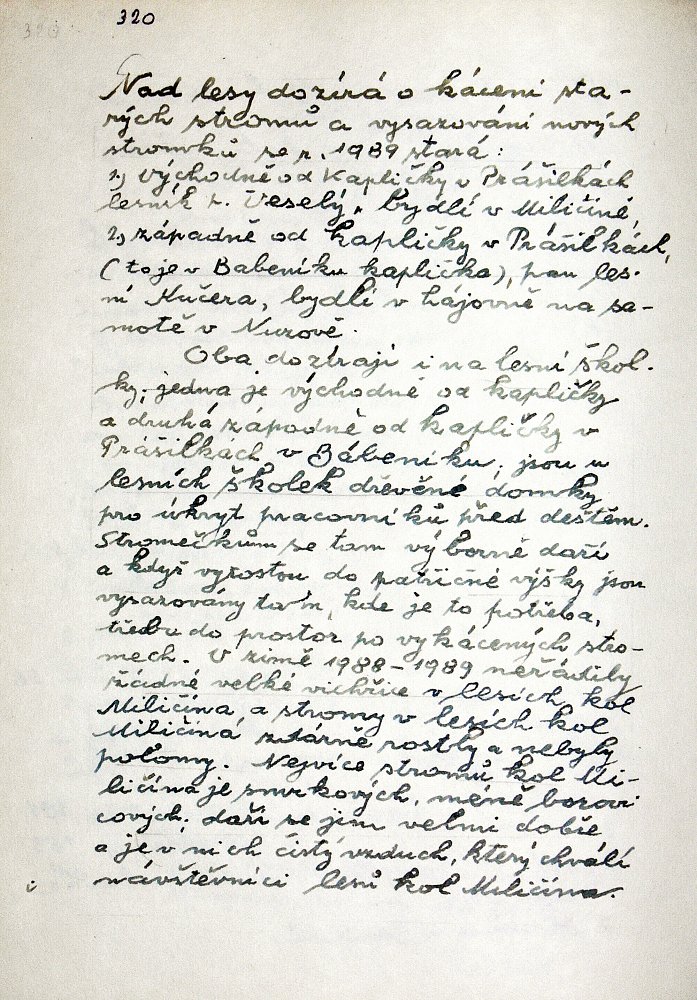 320
Nad lesy dozírá o kácení sta-
rých stromů a vysazování nových
stromků se r. 1989 stará:
1.) Východně od Kapličky v Prášilkách
lesník r. Veselý, bydlí v Miličíně,
2.) západně od kapličky v Prášilkách,
(to je v Babeníku kaplička), pan les-
ní Kučera, bydlí v hájovně na sa-
motě v Nuzově.
Oba dozírají i na lesní škol-
ky; jedna je východně od kapličky
a druhá západně od kapličky v
Prášilkách v Bábeníku; jsou u
lesních školek dřevěné domky
pro úkryt pracovníků před deštěm.
Stromečkům se tam výborně daří
a když vyrostou do patřičné výšky jsou
vysazovány tam, kde je to potřeba,
třeba do prostor po vykácených stro-
mech. V zimě 1988-1989 neřádily
žádné velké vichřice v lesích kol
Miličína, a stromy v lesích kol
Miličína, zdárně rostly a nebyly
polomy. Nejvíce stromů kol Mi-
ličína je smrkových, méně borovi
cových; daří se jim velmi dobře
a je v nich čistý vzduch, který chválí
návštěvníci lesů kol Miličína.